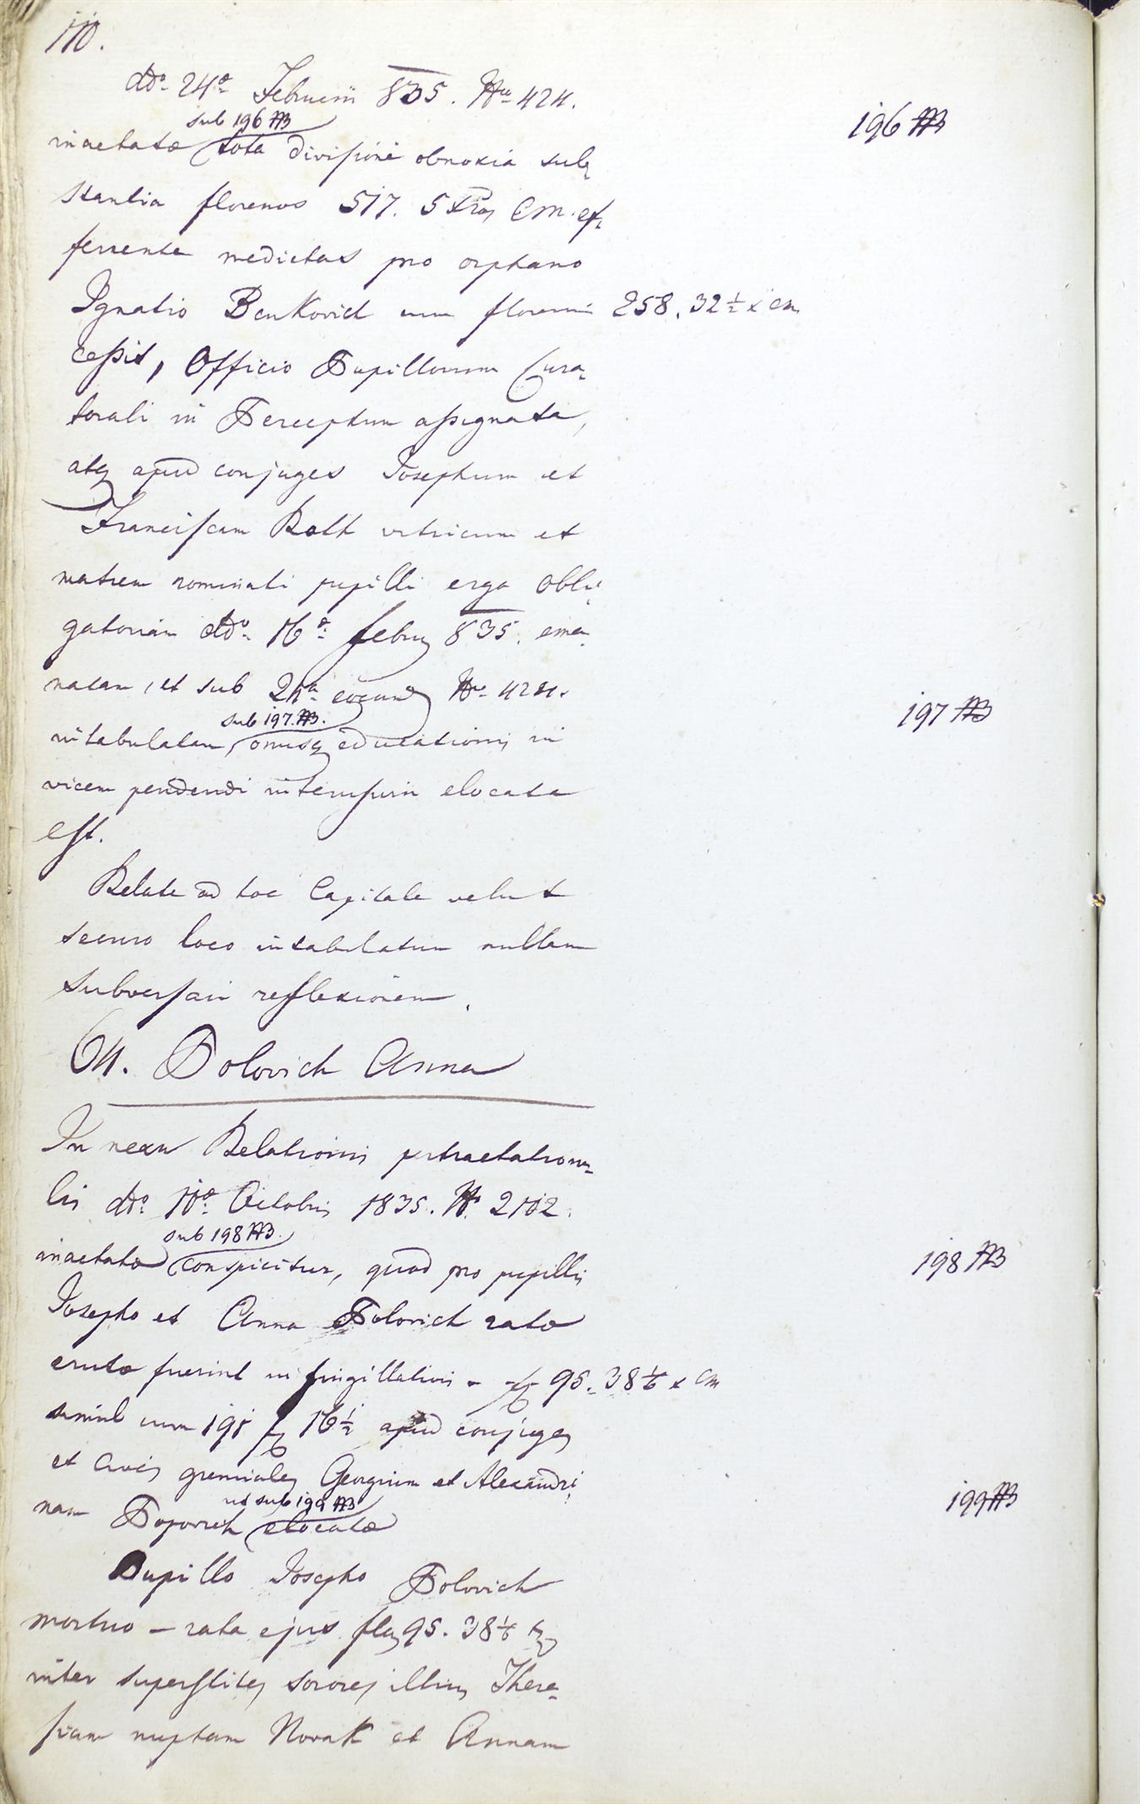 110.
ddo 24a Februarii 835. Nro 424.
sub 196
196
inactato tota divisioni obnoxia sub-
stantia florenos 517. 5 xros CM. ef-
ferente medietas pro orphano
Ignatio Benkovich cum florenis 258. 32 ½ x cm
cessit, Officio Pupillorum Cura-
torali in Perceptum assignata,
atq apud conjuges Josephum et
Franciscam Roth vitricum et
matrem nominati pupilli erga Obli-
gatoriam ddo 16a febr 835. ema-
natam, et sub 24a ejusd Nro 424.
sub 197
197
intabulatam, onusq educationis in
vicem pendendi intersurii elocata
est.
Relate ad hoc Capitale velut
securo loco intabulatum nullam
subversari reflexionem.
64. Polovich Anna
In nexu Relationis pertractationa-
lis ddo 10a Octobris 1835. N. 2102.
sub 198
198
inactato conspicitur, quod pro pupillis
Josepho et Anna Polovich ratae
erutae fuerint in singillativis - f 95. 38 ⅙ x Cm
simul cum 191 f 16 ½ apud conjuges
et cives gremiales Georgium et Alexandri-
ut sub 199
199
nam Popovich elocatae
Pupillo Josepho Polovich
mortuo - rata ejus fl 95. 38 ⅙ x
inter superstites sorores illius There-
siam nuptam Novak et Annam